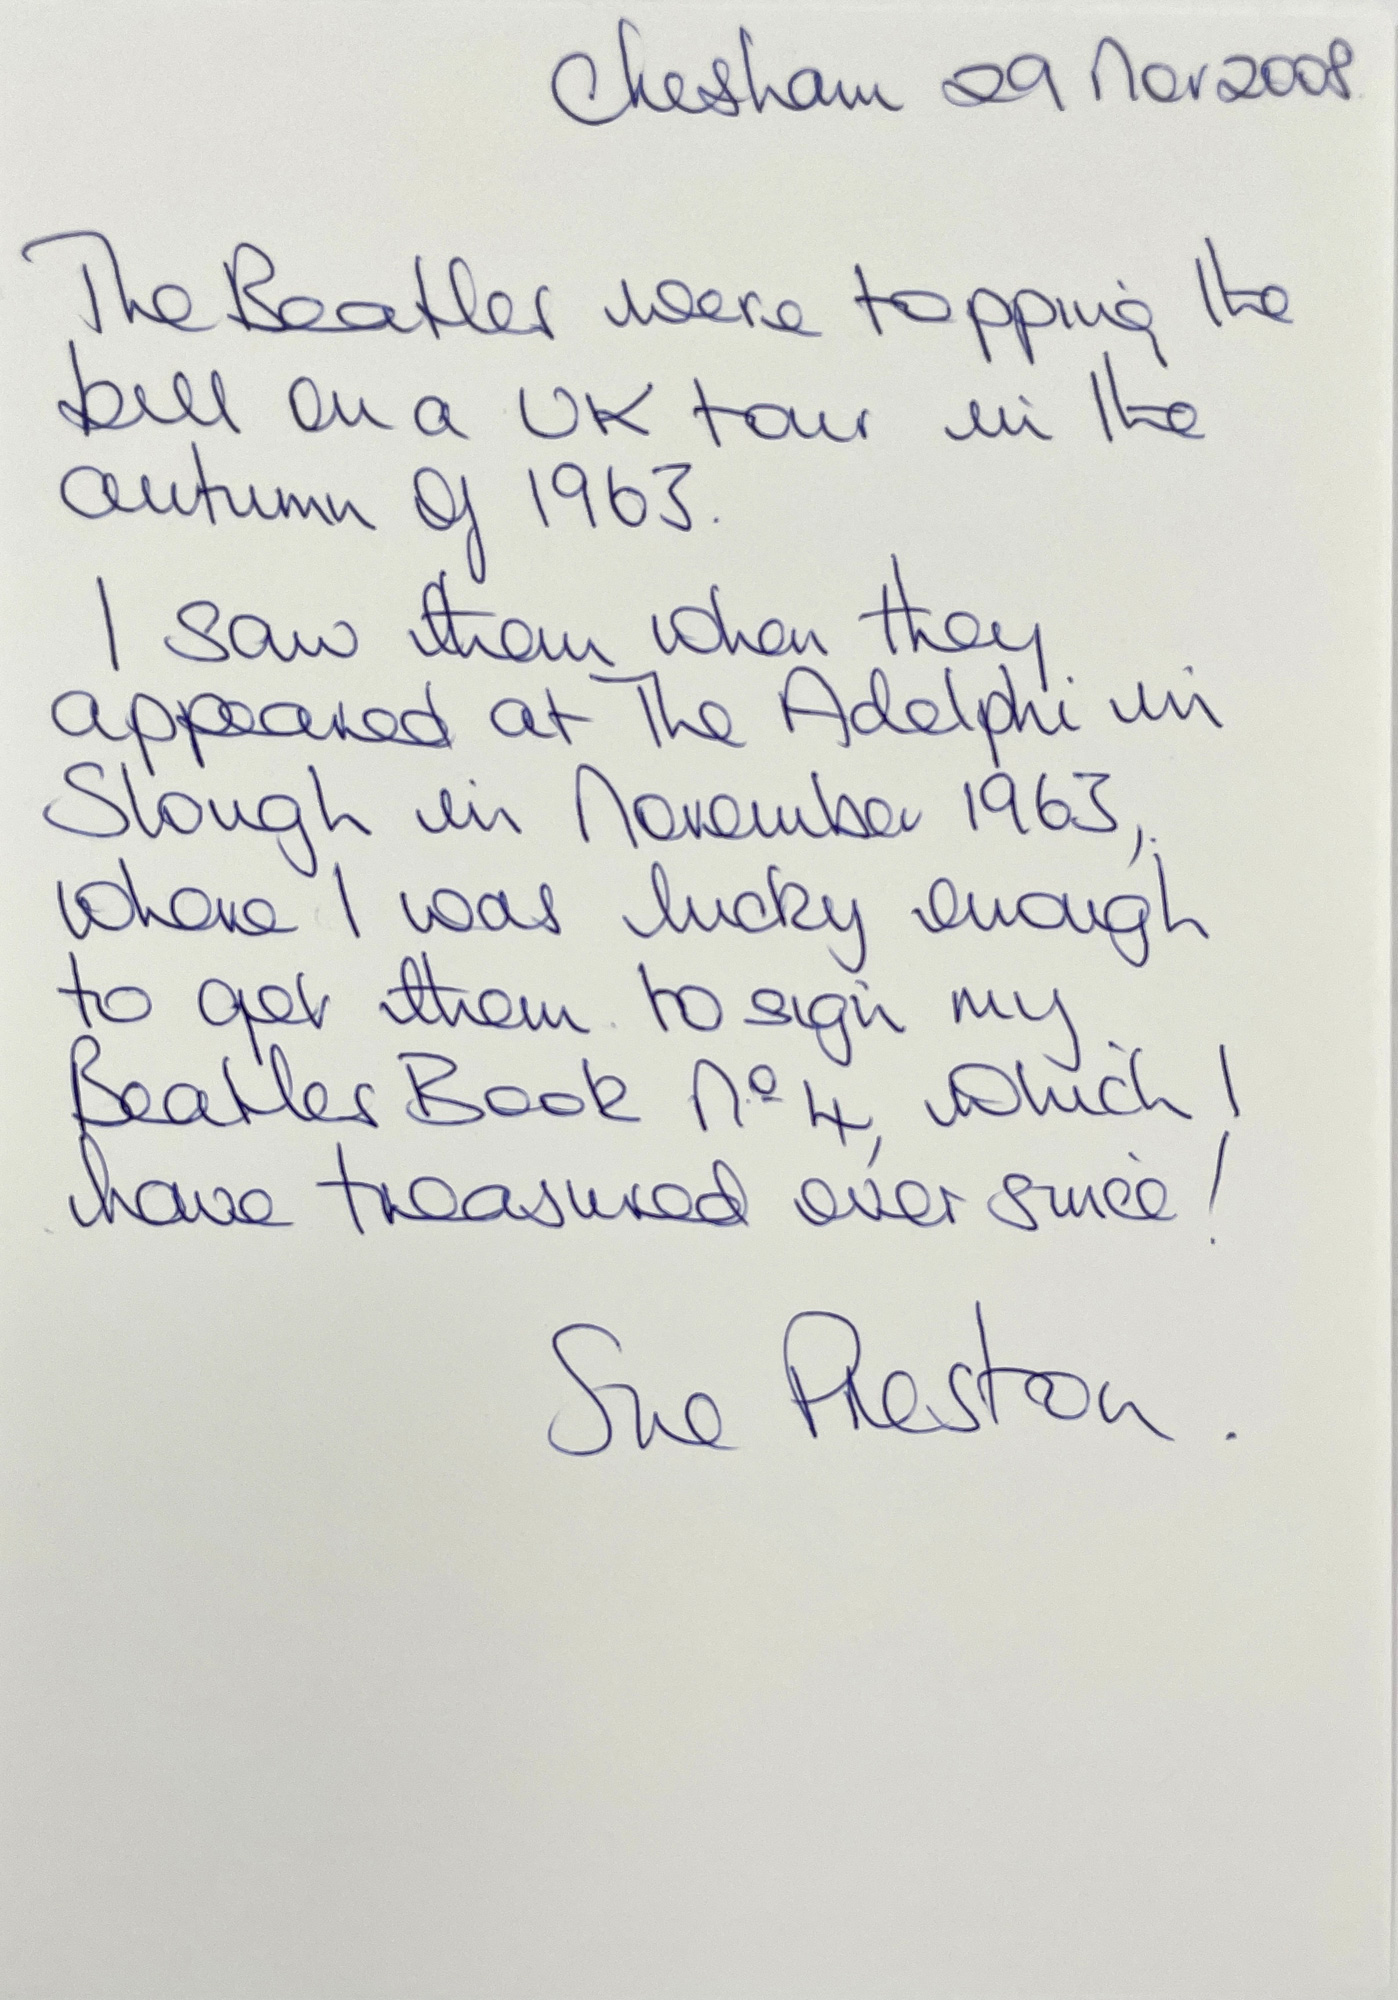 Chesham 29 Nov 2008.
The Beatles were topping the
bill on a UK tour in the
autumn of 1963.
I saw them when they
appeared at The Adelphi in
Slough in November 1963,
where I was lucky enough
to get them to sign my
Beatles Book Nº 4, which I
have treasured ever since!
Sue Preston.